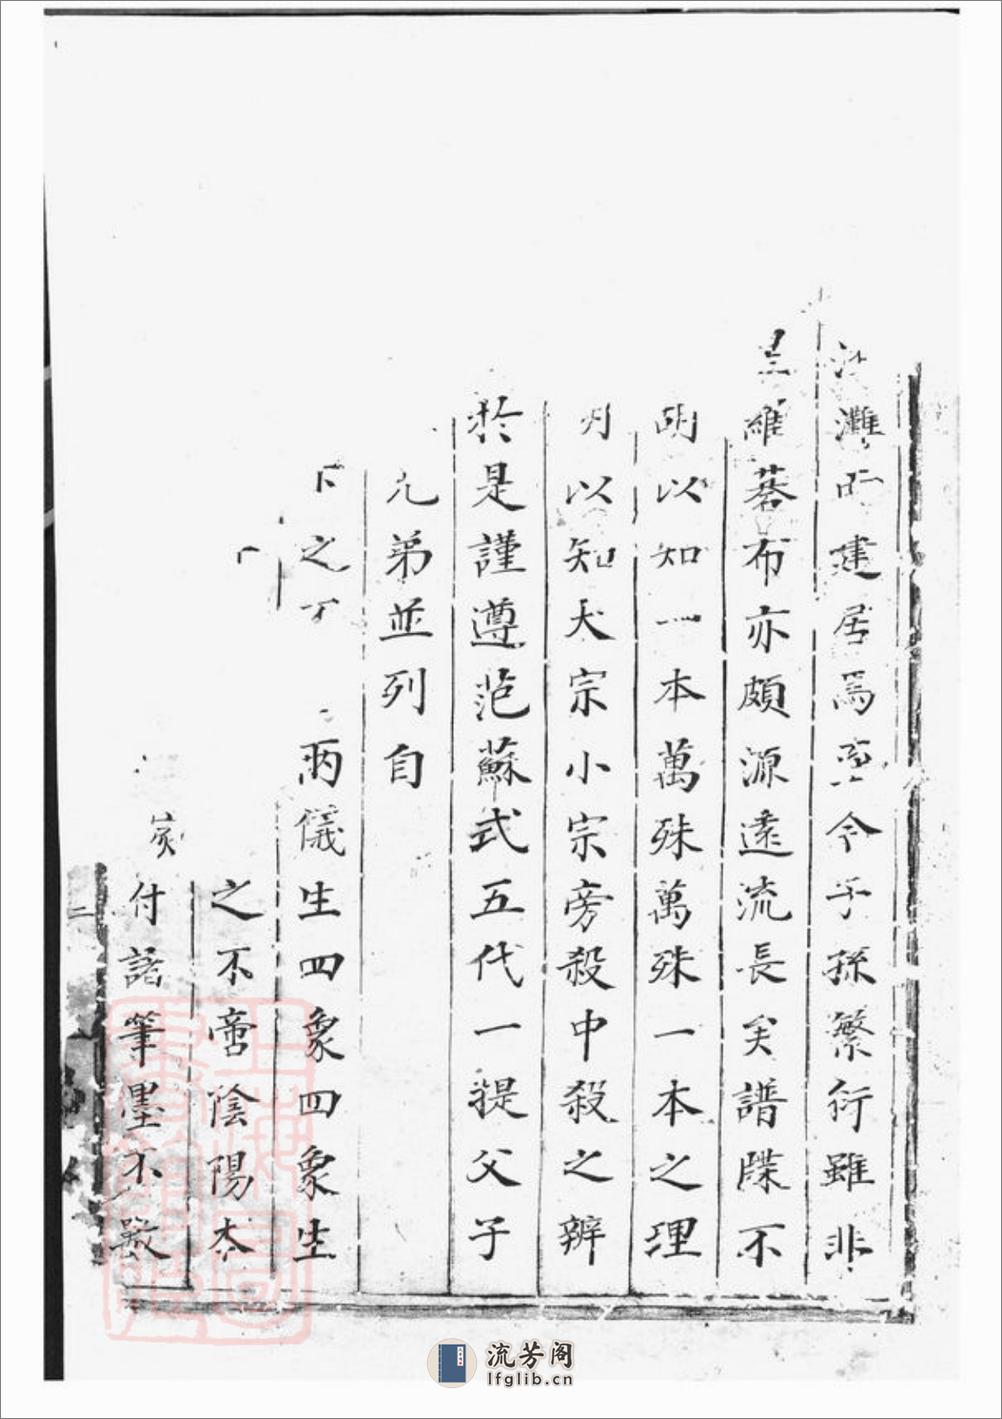 灘而建居焉至今子孫繁衍雖非
星羅碁布亦頗源遠流長矣譜牒不
明以知一本萬殊萬殊一本之理
明以知大宗小宗旁殺中殺之辨
於是謹遵范蘇式五代一提父子
兄弟並列自
下之 兩儀生四象四象生
之不啻陰陽太
付諸筆墨不敢
上海圖書館藏
流芳阁
lfglib.cn